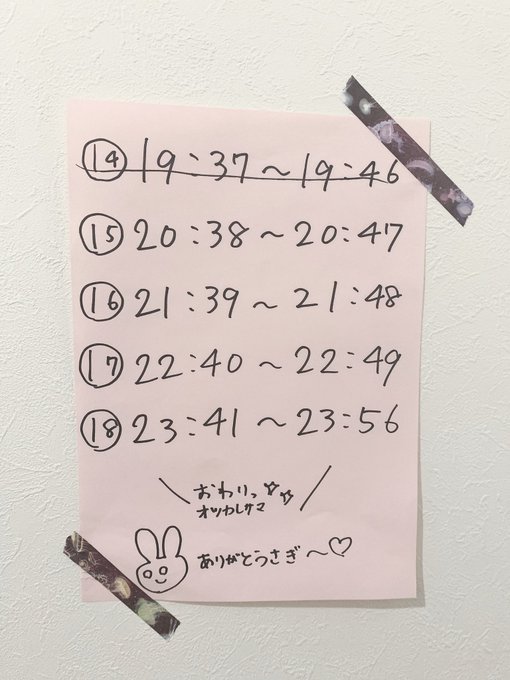 ⑭ 19:37〜19:46
⑮ 20:38〜20:47
⑯ 21:39〜21:48
⑰ 22:40〜22:49
⑱ 23:41〜23:56
\ おわりっ☆☆ /
オツカレサマ
ありがとうさぎ〜♡